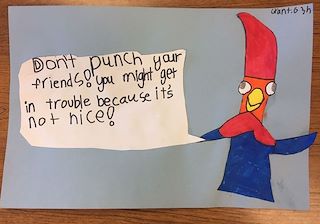 Don't punch your
friends! you might get
in trouble because it's
not nice!